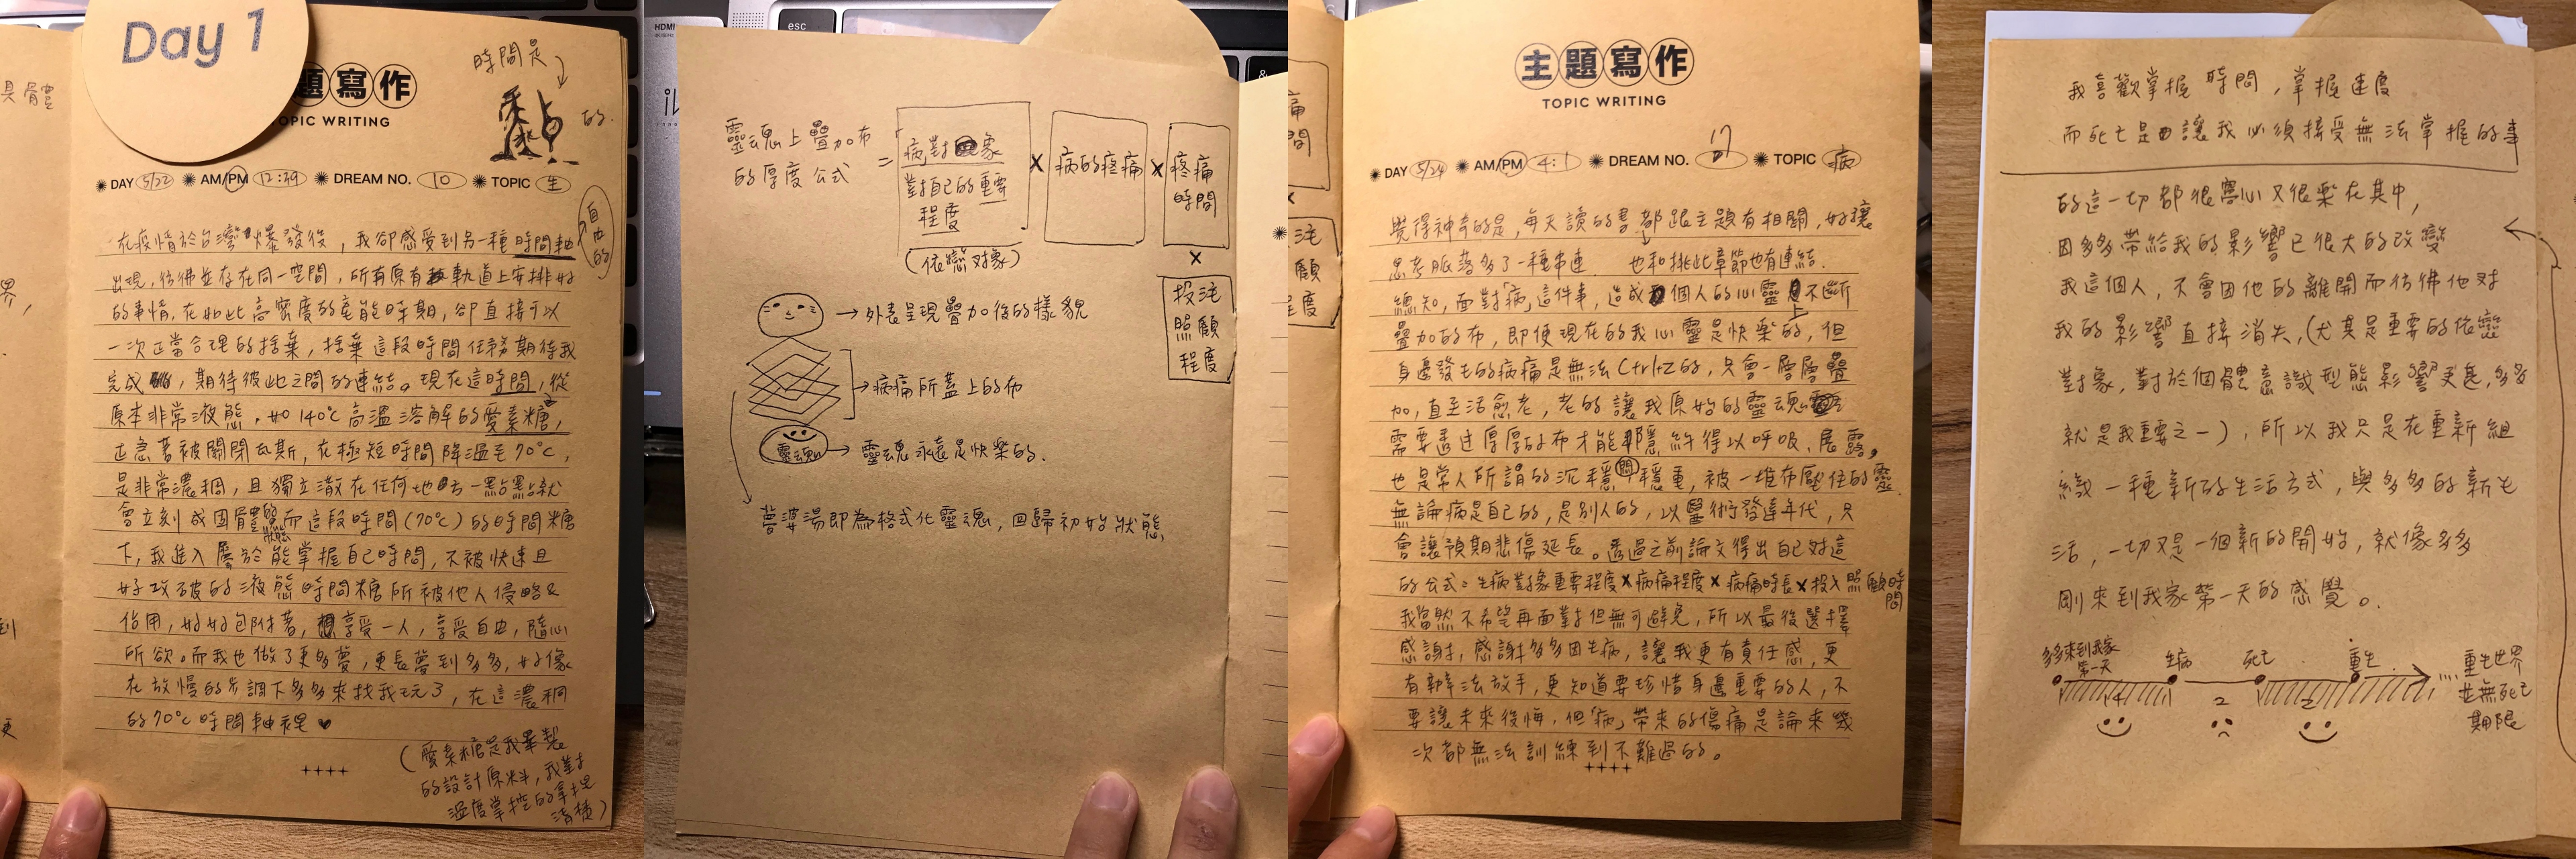 Day 1
時間是
黏
的.
題寫作
OPIC WRITING
DAY 5/22 AM/PM 12:39 DREAM NO. 10 TOPIC 生
自由的
在疫情於台灣爆發後,我卻感受到另一種時間軸
出現,彷彿並存在同一空間,所有原有軌道上安排好
的事情,在如此高密度的產能時期,卻直接予以
一次正當合理的捨棄,捨棄這段時間任務期待我
完成,期待彼此之間的連結。現在這時間,從
原本非常液態,如140°C高溫溶解的愛素糖,
正急著被關閉瓦斯,在極短時間降溫至70°C,
是非常濃稠,且獨立滴在任何地方一點點就
會立刻成固體狀態的而這段時間(70°C)的時間糖
下,我進入屬於能掌握自己時間,不被快速且
好攻破的液態時間糖所被他人侵略及
佔用,好好包附著,享受一人,享受自由,隨心
所欲。而我也做了更多夢,更長夢到多多,好像
在放慢的步調下多多來找我玩了,在這濃稠
的70°C時間軸裡♥
(愛素糖是我畢製
的設計原料,我對
溫度掌控的拿捏
清楚)
++++
具體
界,
到
更
靈魂上疊加布
的厚度公式
=
病對象
對自己的重要
程度
(依戀对象)
×
病的疼痛
×
疼痛
時間
×
投注
照顧
程度
→外表呈現疊加後的樣貌
→病痛所蓋上的布
靈魂
→靈魂永遠是快樂的.
夢婆湯即為格式化靈魂,回歸初始狀態
主題寫作
TOPIC WRITING
DAY 5/24 AM/PM 4:1 DREAM NO. 17 TOPIC 病
覺得神奇的是,每天讀的書都跟主題有相關,好讓
思考脈落多了一種串連. 也和挑此章節也有連結.
總知,面對「病」這件事,造成個人的心靈上不斷
疊加的布,即便現在的我心靈是快樂的,但
身邊發生的病痛是無法Ctrl+Z的,只會一層層疊
加,直至活愈老,老的讓我原始的靈魂
需要透过厚厚的布才能隱約得以呼吸、展露,
也是常人所謂的沉穩穩重,被一堆布壓住的靈.
無論病是自己的,是別人的,以醫術發達年代,只
會讓預期悲傷延長。透過之前論文得出自己对這
的公式:生病對象重要程度×病痛程度×病痛時長×投入照顧時間
我當然不希望再面對但無可避免,所以最後選擇
感謝,感謝多多因生病,讓我更有責任感,更
有辦法放手,更知道要珍惜身邊重要的人,不
要讓未來後悔,但「病」帶來的傷痛是論來幾
次都無法訓練到不難過的。
++++
我喜歡掌握時間,掌握速度
而死亡是讓我必須接受無法掌握的事
的這一切都很窩心又很樂在其中,
因多多帶給我的影響已很大的改變
我這個人,不會因他的離開而彷彿他对
我的影響直接消失,(尤其是重要的依戀
對象,對於個體意識型態影響更甚,多多
就是我重要之一),所以我只是在重新組
織一種新的生活方式,與多多的新生
活,一切又是一個新的開始,就像多多
剛來到我家第一天的感覺。
多多來到我家
第一天
生病
死亡
重生
....重生世界
並無死亡
期限